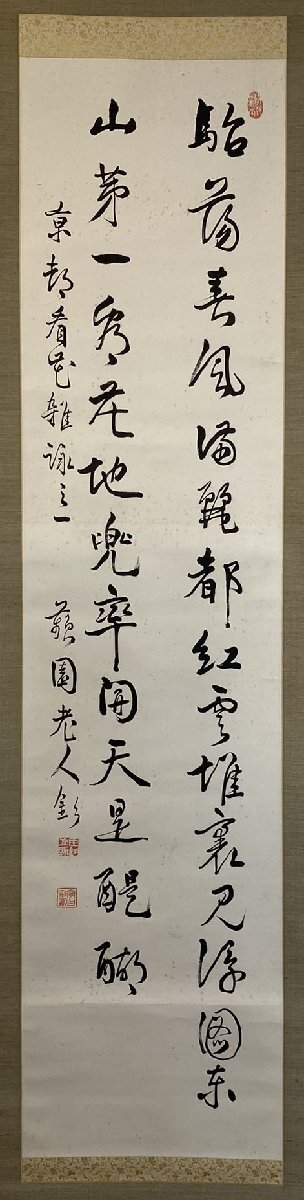 駘蕩春風滿麗都紅雲堆裏見浮圖東
山第一看花地兜率開天是醍醐
京都看花雜詠之一　蘋園老人彭